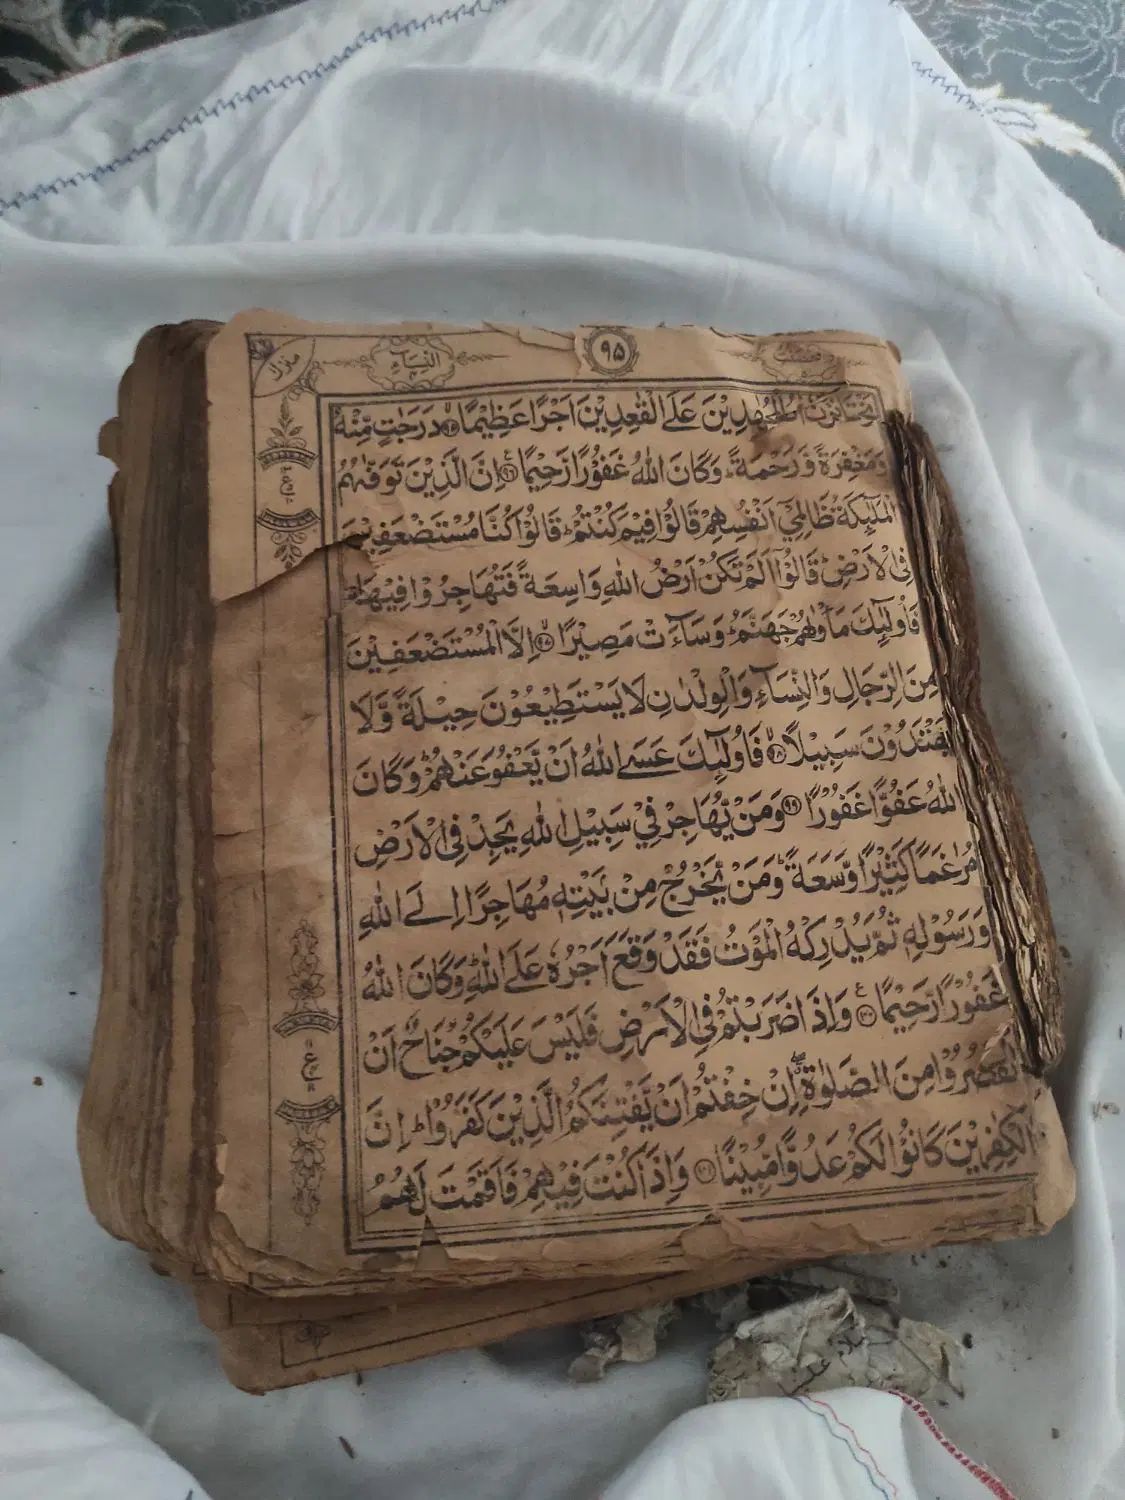 النِّسَآءِ
۹۵
منزل
الْمُجٰهِدِيْنَ عَلَى الْقٰعِدِيْنَ اَجْرًا عَظِيْمًا دَرَجٰتٍ مِّنْهُ
وَمَغْفِرَةً وَّرَحْمَةً ؕ وَكَانَ اللّٰهُ غَفُوْرًا رَّحِيْمًا ۩ع اِنَّ الَّذِيْنَ تَوَفّٰىهُمُ
الْمَلٰٓئِكَةُ ظَالِمِيْٓ اَنْفُسِهِمْ قَالُوْا فِيْمَ كُنْتُمْ ؕ قَالُوْا كُنَّا مُسْتَضْعَفِيْنَ
فِى الْاَرْضِ ؕ قَالُوْٓا اَلَمْ تَكُنْ اَرْضُ اللّٰهِ وَاسِعَةً فَتُهَاجِرُوْا فِيْهَا ؕ
فَاُولٰٓئِكَ مَاْوٰىهُمْ جَهَنَّمُ ؕ وَسَآءَتْ مَصِيْرًا اِلَّا الْمُسْتَضْعَفِيْنَ
مِنَ الرِّجَالِ وَالنِّسَآءِ وَالْوِلْدَانِ لَا يَسْتَطِيْعُوْنَ حِيْلَةً وَّلَا
يَهْتَدُوْنَ سَبِيْلًا ۹۸ فَاُولٰٓئِكَ عَسَى اللّٰهُ اَنْ يَّعْفُوَ عَنْهُمْ ؕ وَكَانَ
اللّٰهُ عَفُوًّا غَفُوْرًا ۹۹ وَمَنْ يُّهَاجِرْ فِيْ سَبِيْلِ اللّٰهِ يَجِدْ فِى الْاَرْضِ
مُرٰغَمًا كَثِيْرًا وَّسَعَةً ؕ وَمَنْ يَّخْرُجْ مِنْۢ بَيْتِهٖ مُهَاجِرًا اِلَى اللّٰهِ
وَرَسُوْلِهٖ ثُمَّ يُدْرِكْهُ الْمَوْتُ فَقَدْ وَقَعَ اَجْرُهٗ عَلَى اللّٰهِ ؕ وَكَانَ اللّٰهُ
غَفُوْرًا رَّحِيْمًا ۱۰۰ ع وَاِذَا ضَرَبْتُمْ فِى الْاَرْضِ فَلَيْسَ عَلَيْكُمْ جُنَاحٌ اَنْ
تَقْصُرُوْا مِنَ الصَّلٰوةِ ۖ اِنْ خِفْتُمْ اَنْ يَّفْتِنَكُمُ الَّذِيْنَ كَفَرُوْا ؕ اِنَّ
الْكٰفِرِيْنَ كَانُوْا لَكُمْ عَدُوًّا مُّبِيْنًا ۱۰۱ وَاِذَا كُنْتَ فِيْهِمْ فَاَقَمْتَ لَهُمُ